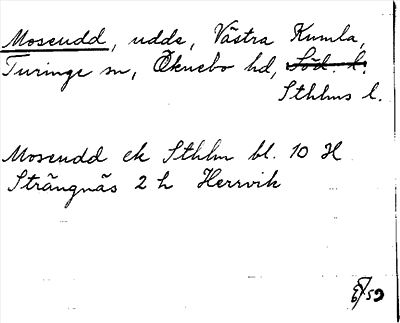 Mosudd, udde, Västra Kumla,
Turinge sn, Öknebo hd, Söd. l.
Sthlms l.
Mosudd ek Sthlm bl. 10 H
Strängnäs 2 h Herrvik
59